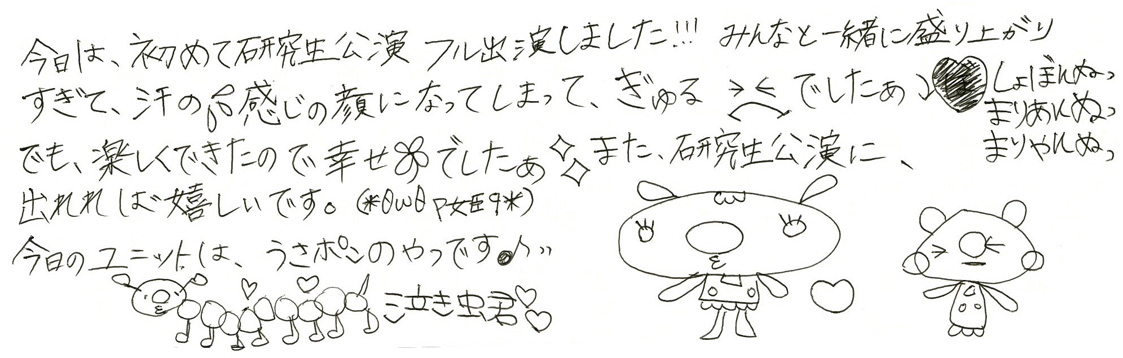 今日は、初めて研究生公演 フル出演しました!!! みんなと一緒に盛り上がり
すぎて、汗の感じの顔になってしまって、ぎゅる ><でしたぁ
しょぼんぬっ
まりあんぬっ
まりやんぬっ
でも、楽しくできたので幸せでしたぁ また、研究生公演に、
出れればが嬉しいです。(*θωθ
今日のユニットは、うさポンのやつです♪
泣き虫君